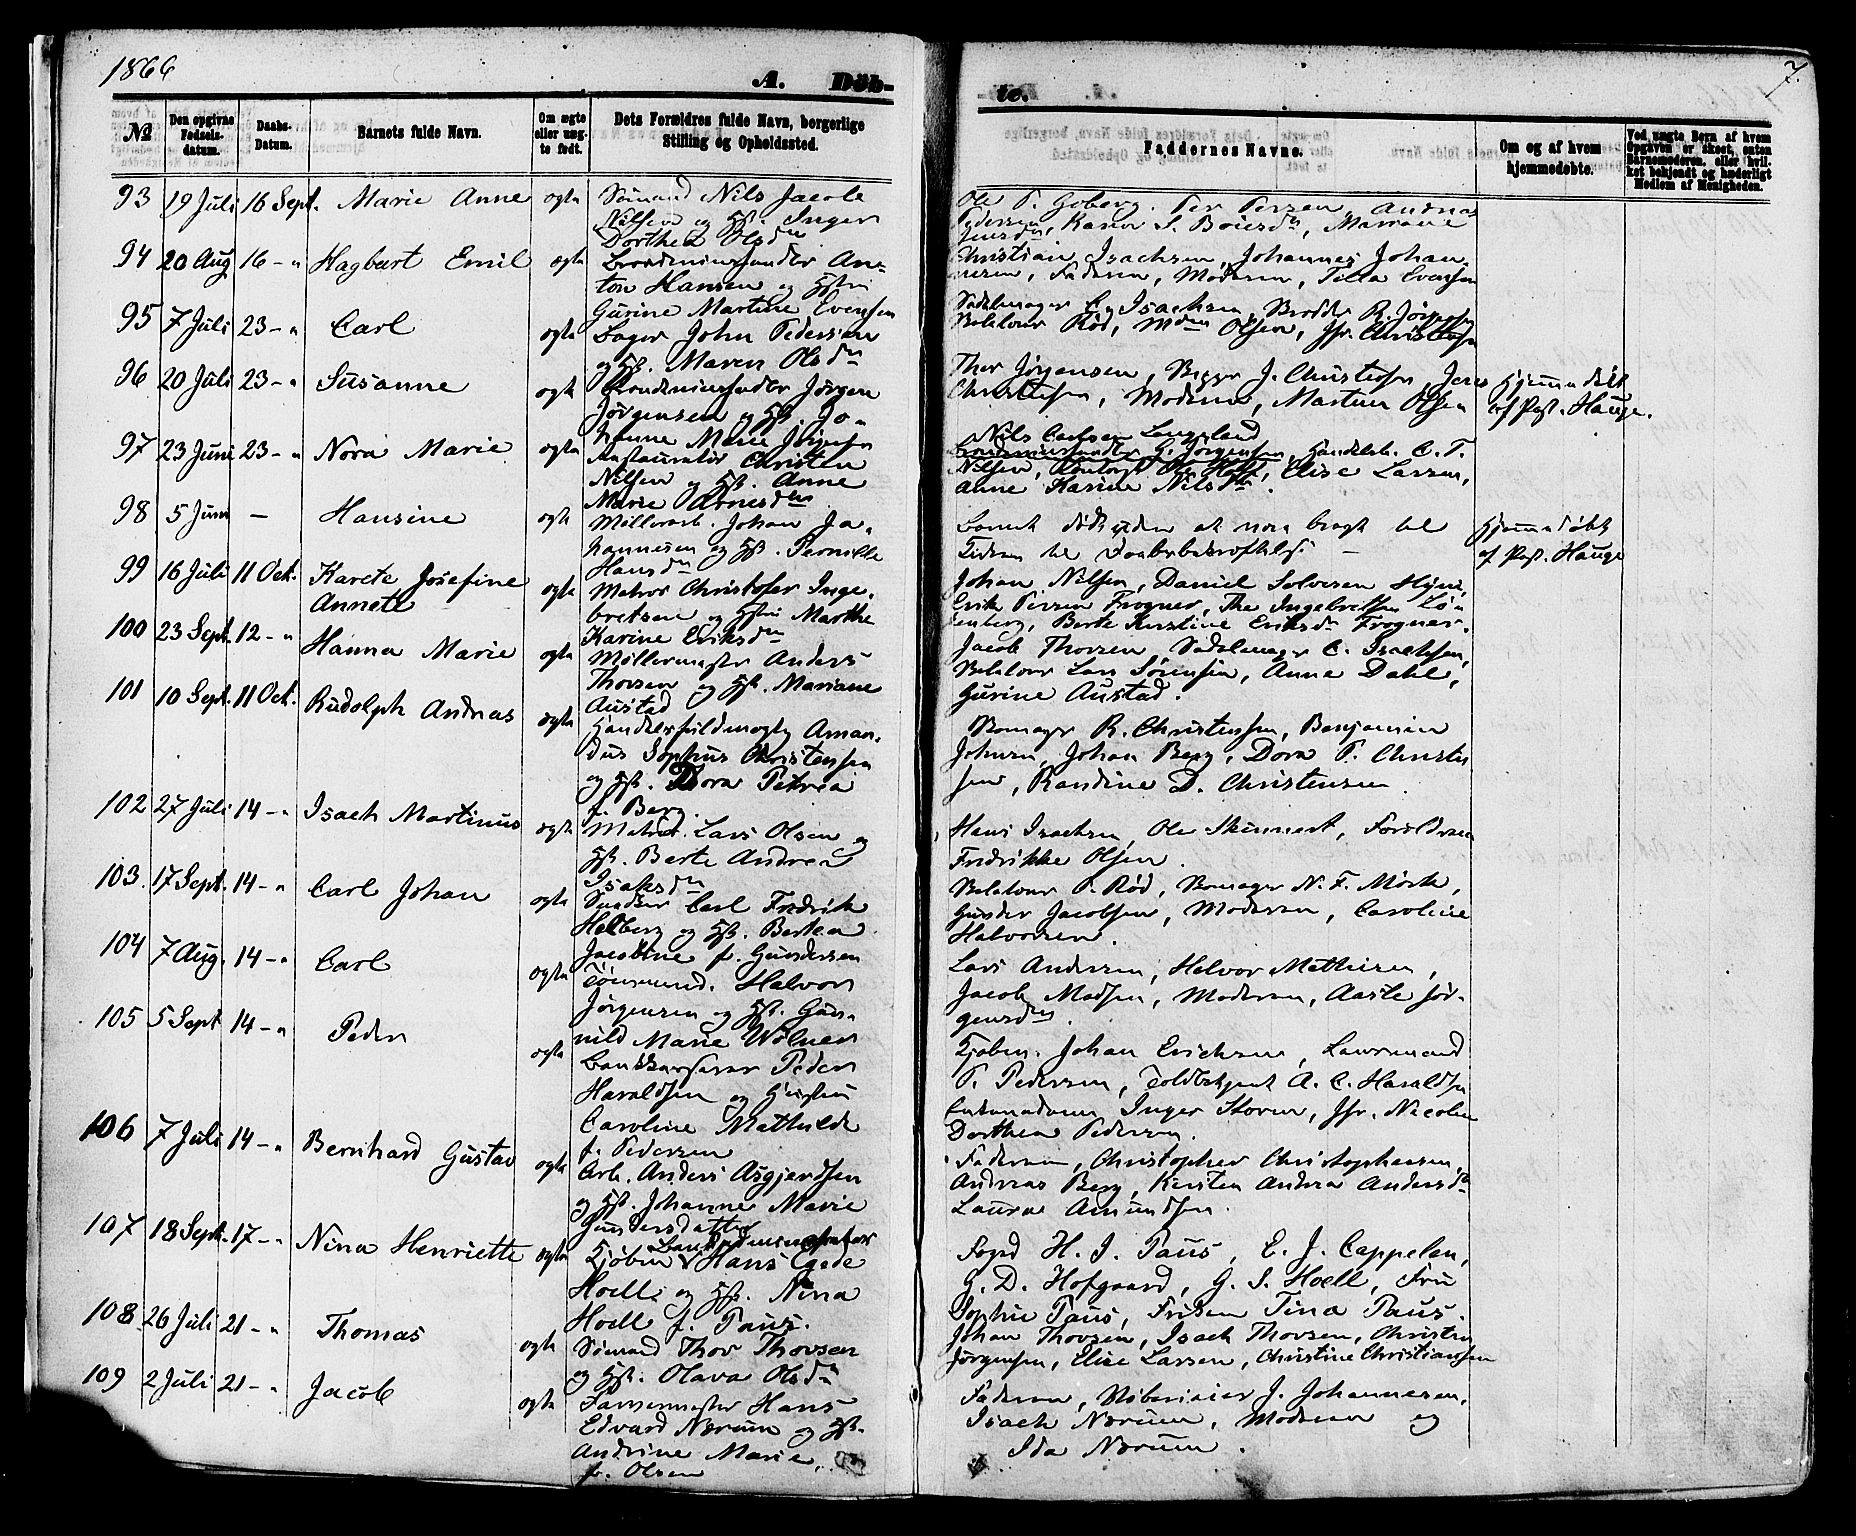 1866
A. Döb-
te.
7.
№
Den opgivne Fødsels-datum.
Daabs-Datum.
Barnets fulde Navn.
Om ægte eller uægte født.
Dets Forældres fulde Navn, borgerlige Stilling og Opholdssted.
Faddernes Navne.
Om og af hvem hjemmedøbte.
Ved uægte Børn af hvem Opgaven er skeet, enten Barnemoderen, eller hvilket bekjendt og hæderligt Medlem af Menigheden.
93 19 Juli 16 Sept. Marie Anne ogta Sømand Nils Jacob
Nilsen og Hst. Inger
Dorthea Olsdtr
Ole P. Goberg. Per Persen, Andreas
Pedersen, Karen S. Boiesdtr, Mariane
94 20 Aug. 16 - " Hagbart Emil ogta
Anton Hansen og Hstru
Gurine Martine Evensen
Christian Isachsen, Johannes Johannesen, Faderen, Moderen, Tilla Evensen
95 7 Juli 23 - " Carl ogta Bager John Pedersen
og Hst. Maren Olsdtr
Sadelmager C. Isachsen, R. Jørgensen
Rød, Mdm Olsen, Jfr. Christensen
96 20 Juli 23 - " Susanne ogta Jørgen
Jørgensen og Hst. Johanne Marie Jørgensen
Thor Jørgensen, Bygger J. Christensen, Jens
Christensen, Moderen, Martin Olsen
Hjemmedøbt
af Past. Hauge.
97 23 Juni 23 - " Nora Marie ogta Restauratør Christen
Nilsen og Hst. Anne
Marie Arnesdtr
Nils Carlsen Langeland
G. Jørgensen, Handelsb. C. T.
Nilsen, Ole Holt, Elise Larsen,
Anne Karine Nilsdtr.
98 5 Juni - Hansine ogta Møllerarb. Johan Johannesen og Hst. Pernille
Hansdtr
Barnet døde uden at være bragt til
Kirken til Daabsbekræftelse -
Hjemmedøbt
af Past. Hauge
99 16 Juli 11 Oct. Karete Josefine
Annete ogta Matros Christofer Ingebretsen og Hstru Marthe
Karine Eriksdtr
Johan Nilsen, Daniel Solvesen
Erik Persen Frogner, Thr Ingebretsen
Berte Kirstine Eriksdtr Frogner.
100 23 Sept. 12 - " Hanna Marie ogta Møllermester Anders
Thorsen og Hst. Mariane
Austad
Jacob Thorsen, Sadelmager C. Isachsen,
Lars Sørensen, Anne Dahl,
Gurine Austad.
101 10 Sept. 11 Oct. Rudolph Andreas ogta Handelsfuldmegtig Amandus Sophus Christensen
og Hst. Dora Petrea
f. Berg
R. Christensen, Benjamin
Johnsen, Johan Berg, Dora P. Christensen, Randine D. Christensen.
102 27 Juli 14 - " Isach Martinus ogta Matros Lars Olsen og
Hst. Berte Andrea
Isaksdtr
Hans Isachsen, Ole Forældrene
Fredrikke Olsen.
103. 17 Sept. 14 - " Carl Johan ogta Snedker Carl Fredrik
Helberg og Hst. Bertea
Jacobine f. Gundersen
P. Rød, N. F. Mørk,
Gunder Jacobsen, Moderen, Caroline
Halvorsen.
104 7 Aug. 14 - " Carl ogta Tømmermd. Halvor
Jørgensen og Hst. Gunnild Marie Wølner
Lars Andersen, Halvor Mathisen,
Jacob Madsen, Moderen, Aaste Jørgensdtr.
105 5 Sept 14 - " Peder ogta Bankkasserer Peder
Haraldsen og Hustru
Caroline Mathilde
f. Pedersen
Kjøbm. Johan Erichsen,
P. Pedersen, Toldbetjent A. C. Haraldsen
Inger Storm, Jfr. Nicoline
Dorthea Pedersen.
106 7 Juli 14 - " Bernhard Gustav ogta Arb. Anders Asgjerdsen
og Hst. Johanne Marie
Gundersdatter
Faderen, Christopher Christophersen,
Andreas Berg, Kirsten Andrea Andersdtr
Laura Amundsen.
107 18 Sept. 17 - " Nina Henriette ogta Bankadministrator
Kjøbm Hans Egede
Hoell og Hst. Nina
Hoell f. Paus.
Foged H. J. Paus, E. J. Cappelen,
G. D. Hofgaard, G. S. Hoell, Fru
Sophie Paus, Frøken Tina Paus.
108 26 Juli 21 - " Thomas ogta Sømand Thor Thorsen
og Hst. Olava Olsdtr
Johan Thorsen, Isach Thorsen, Christen
Jørgensen, Elise Larsen, Christine Christiansen
109 2 Juli 21 - " Jacob ogta Hans
Edvard Nærum og Hst.
Andrine Marie
f. Olsen
Faderen, J. Johannesen,
Isach Nærum, Moderen og
Ida Nærum.